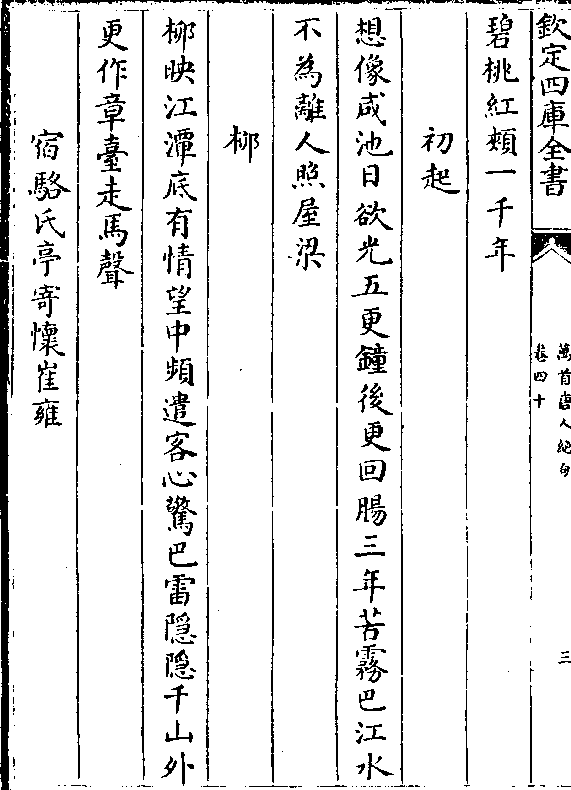 欽定四庫全書
萬首唐人絶句
卷四十
三
碧桃紅頰一千年
初起
想像咸池日欲光五更鐘後更回腸三年苦霧巴江水
不為離人照屋梁
柳
柳映江潭底有情望中頻遣客心驚巴雷隱隱千山外
更作章臺走馬聲
宿駱氏亭寄懷崔雍